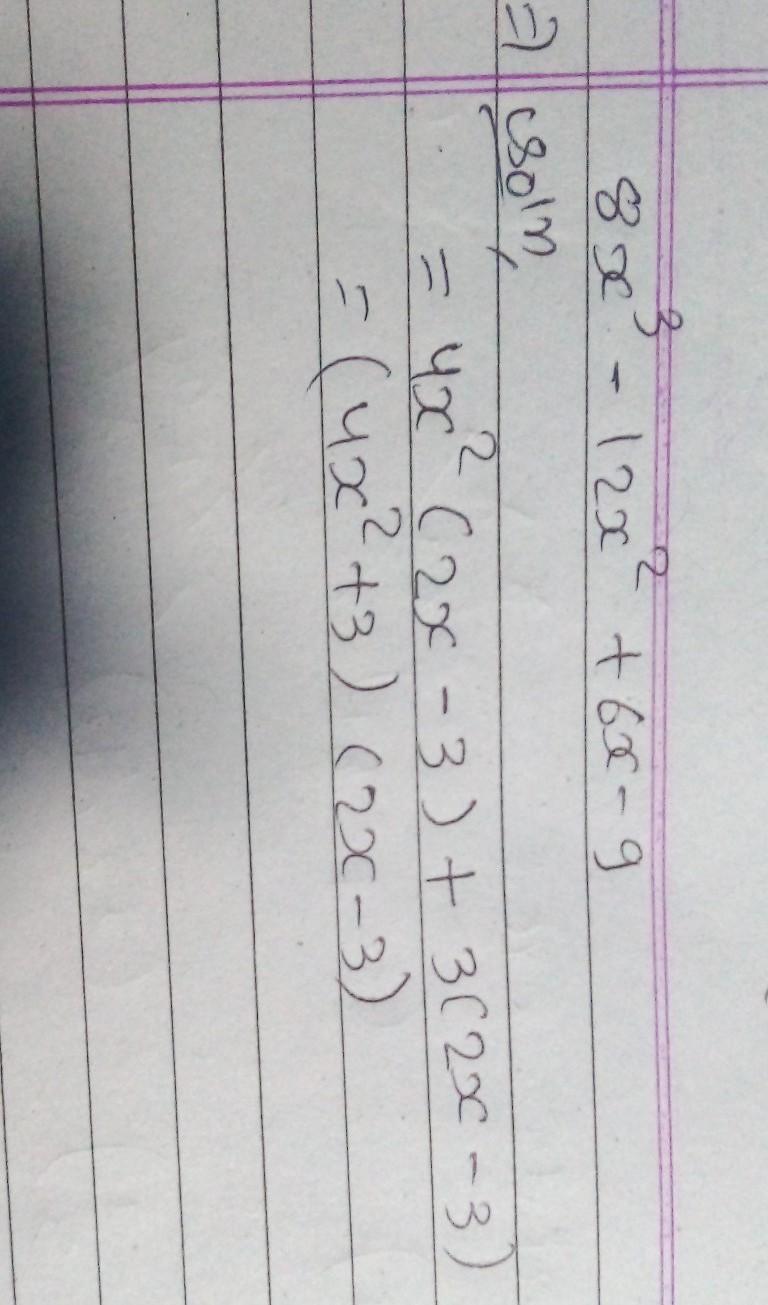 8x³ - 12x² + 6x - 9
=) Soln,
= 4x² (2x - 3) + 3(2x - 3)
= (4x² + 3) (2x - 3)